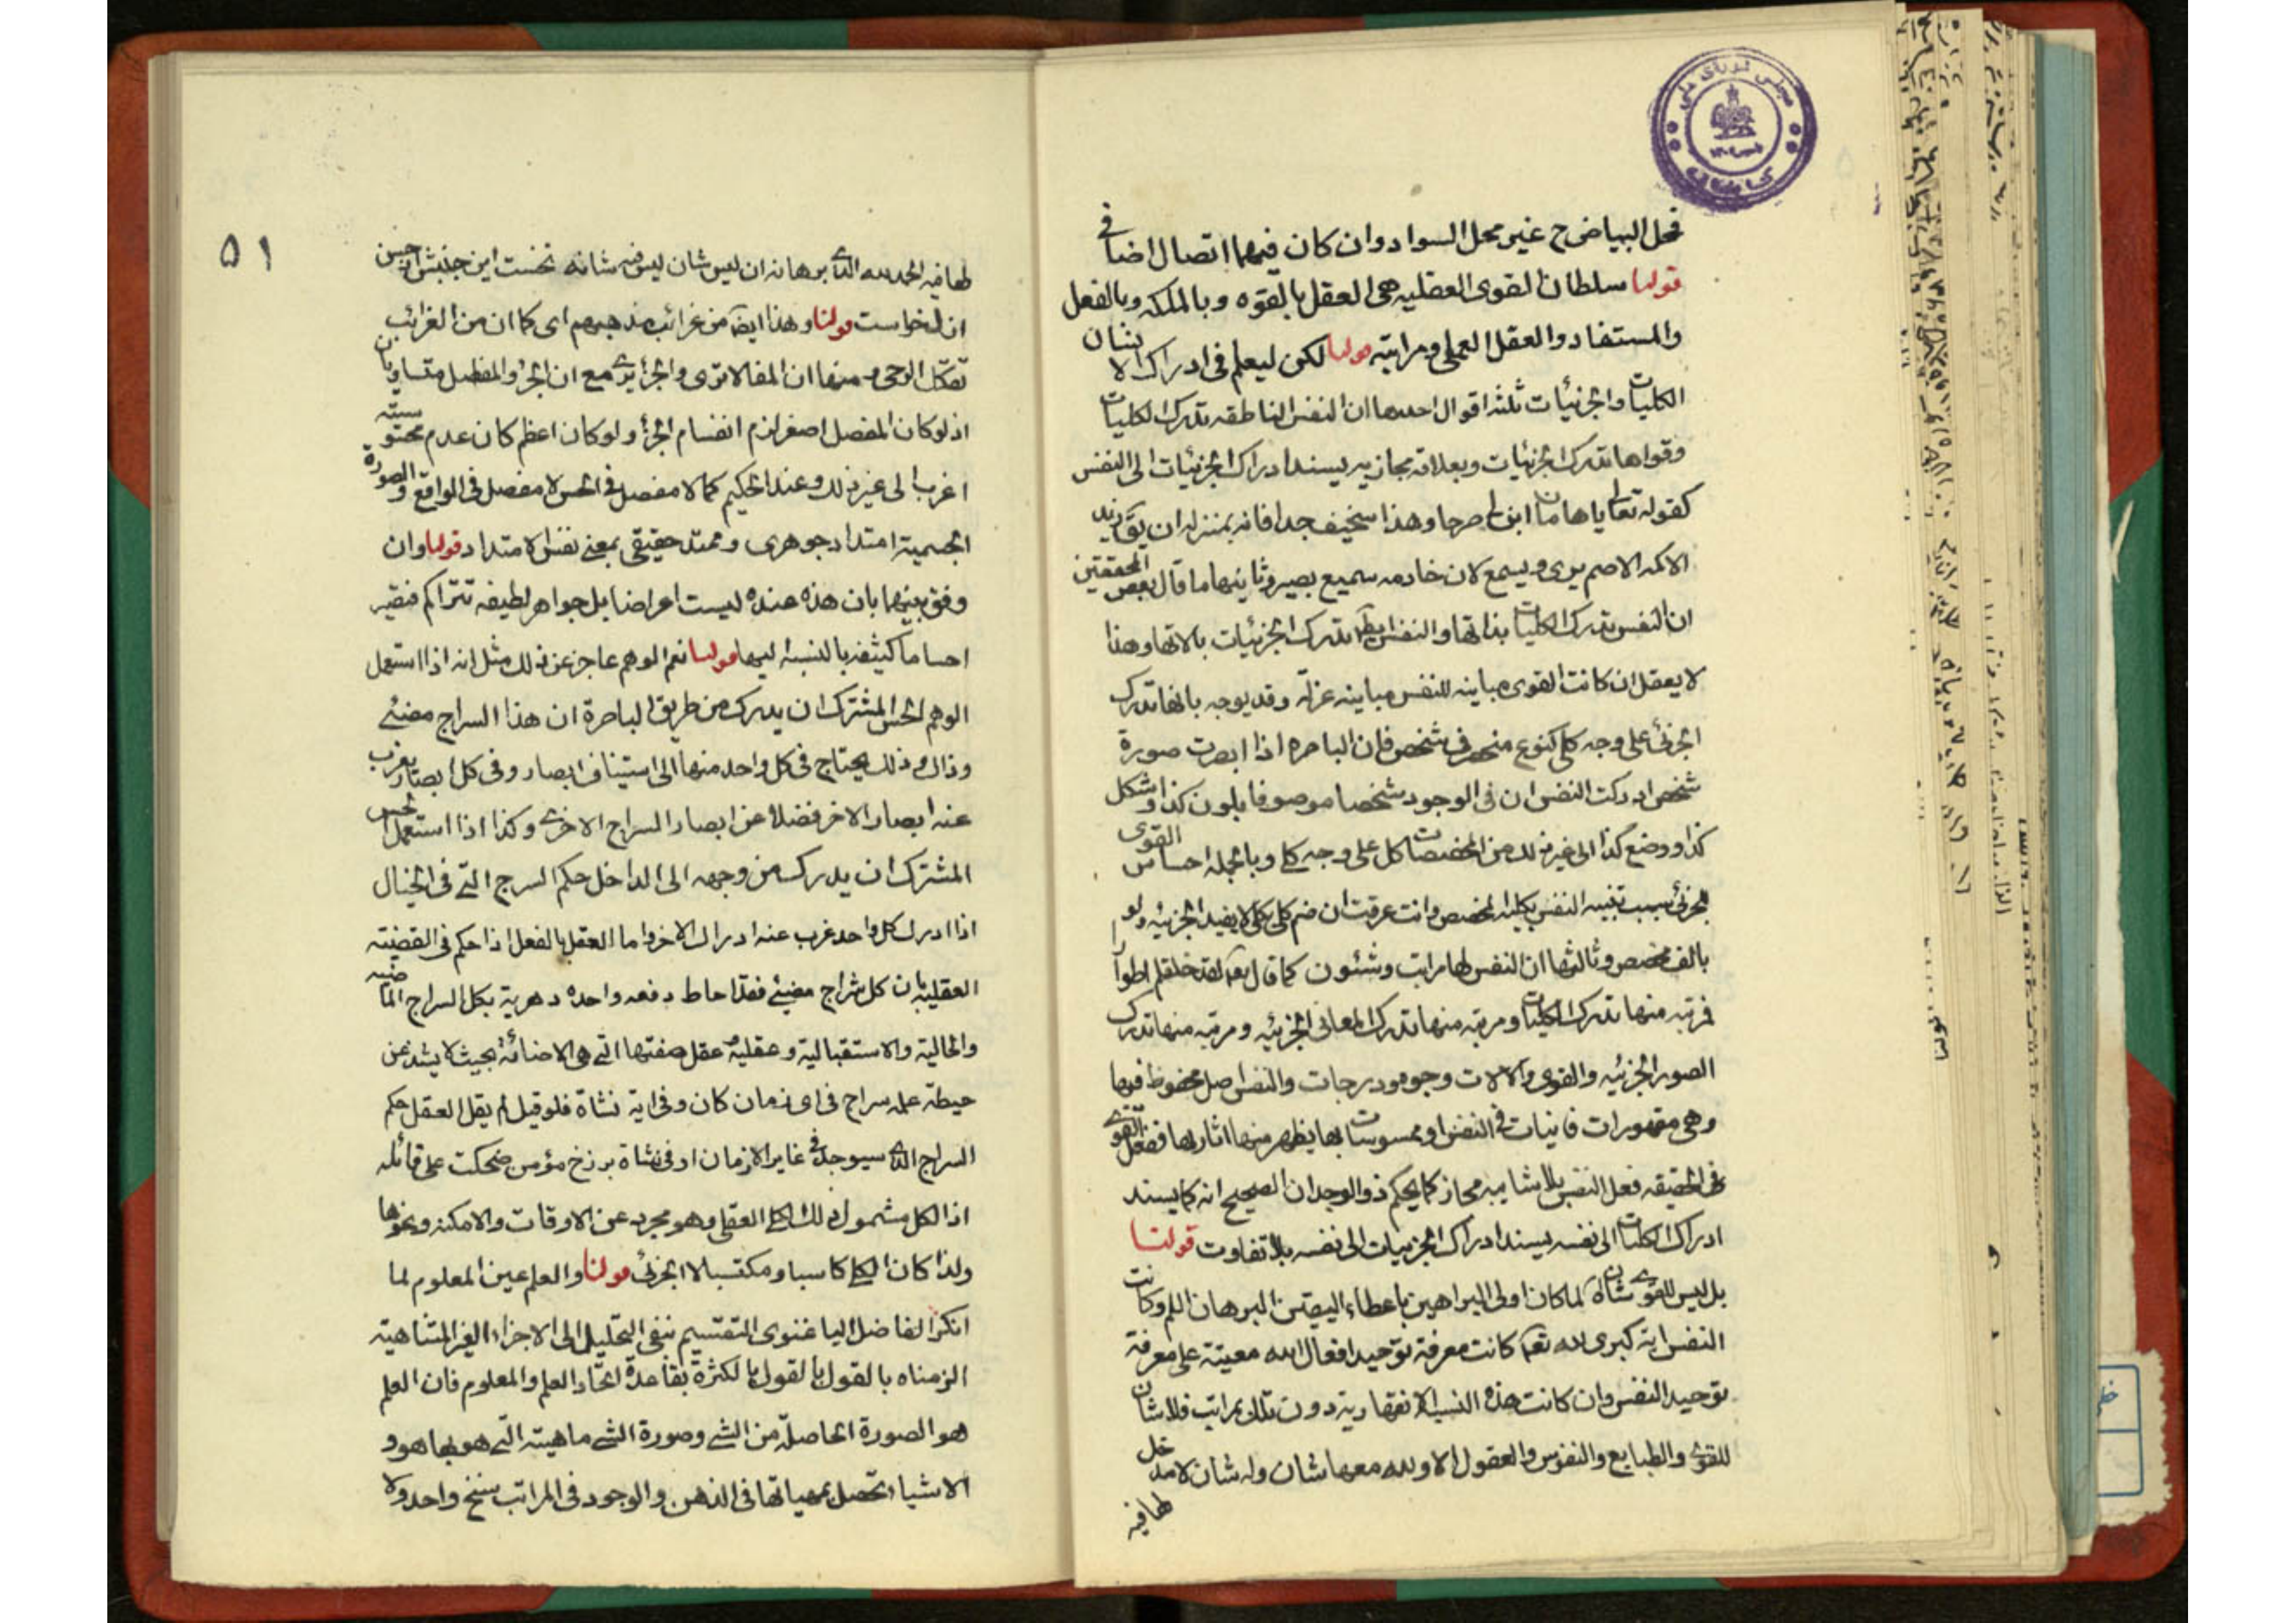 فمحل البياض ح غير محل السواد وان كان فيهما اتصال اضافى
قولنا سلطان القوى العقليه هى العقل بالقوه وبالملكه وبالفعل
والمستفاد والعقل العملى ومراتبه قولنا لكن ليعلم فى ادراك الانسان
الكليات والجزئيات ثلثه اقوال احدها ان النفس الناطقه تدرك الكليات
وقواها تدرك الجزئيات وبعلاقه مجازيه يسند ادراك الجزئيات الى النفس
كقوله تعالى ياهامان ابن لى صرحا وهذا سخيف جدا فانه بمنزله ان يق زيد
الاكمه الاصم يرى ويسمع لان خادمه سميع بصير وثانيها ما قال بعض المحققين
ان النفس تدرك الكليات بذاتها والنفس ايضا تدرك الجزئيات بالاتها وهذا
لا يعقل ان كانت القوى مباينه للنفس مباينه عزلة وقد يوجه بانها تدرك
الجزئى على وجه كلى كنوع منحصر فى شخص فان الباصره اذا ابصرت صورة
شخص ادركت النفس ان فى الوجود شخصا موصوفا بلون كذا وشكل
كذا ووضع كذا الى غير ذلك من المخصصات كل على وجه كلى وبالجمله احساس القوى
الجزئى سبب تنبيه النفس بكليه المخصص وانت عرفت ان ضم كلى بكلى لا يفيد الجزئيه ولو
بالف مخصص وثالثها ان النفس لها مراتب وشئون كما قال تعالى لقد خلقكم اطوارا
فمرتبه منها تدرك الكليات ومرتبه منها تدرك المعانى الجزئيه ومرتبه منها تدرك
الصور الجزئيه والقوى والالات وجوه ودرجات والنفس اصل محفوظ فيها
وهى مقهورات فانيات فى النفس او ممسوسات بها يظهر منها اثارها ففعل القوى
فى الحقيقه فعل النفس بلا شايبه مجاز كما يحكم ذو الوجدان الصحيح انه كما يسند
ادراك الكليات الى نفسه يسند ادراك الجزئيات الى نفسه بلا تفاوت قولنا
بل ليس للقوى شان لما كان اولى البراهين باعطاء اليقين البرهان اللم وكانت
النفس اية كبرى لله تعم كانت معرفة توحيد افعال الله معينة على معرفة
توحيد النفس وان كانت هذه النسب الافتقاريه دون تلك بمراتب فلا شان
للقوى والطبايع والنفوس والعقول الا ولله معها شان وله شان لا مدخل
لها فيه
۵۱
لها فيه الحمد لله الذى برهانه ان ليس شان ليس فيه شانه نخست اين جنبش از حسن
ازل خواست قولنا وهذا ايضا من غرائب مذهبهم اى كما ان من الغرائب
تفكك الرحى ومنها ان المفصل لا ترى والجزء يرى مع ان الجزء والمفصل متساويان
اذ لو كان المفصل اصغر لزم انقسام الجزء ولو كان اعظم كان عدم محسوسيته
اغرب الى غير ذلك وعند الحكيم كما لا مفصل فى الحس لا مفصل فى الواقع والصورة
الجسمية امتداد جوهرى وممتد حقيقى بمعنى نفس الامتداد قولنا وان
وفق بينهما بان هذه عنده ليست اعراضا بل جواهر لطيفه تتراكم فتصير
اجساما كثيفه بالنسبه اليها قولنا نعم الوهم عاجز عن ذلك مثل انه اذا استعمل
الوهم الحس المشترك ان يدرك من طريق الباصرة ان هذا السراج مضيئ
وذاك وذلك يحتاج فى كل واحد منها الى استيناف ابصار وفى كل ابصار يغرب
عنه ابصار الاخر فضلا عن ابصار السراج الاخرى وكذا اذا استعمل الحس
المشترك ان يدرك من وجهه الى الداخل حكم السرج التى فى الخيال
اذا ادرك كل واحد غرب عنه ادراك الاخر واما العقل بالفعل اذا حكم فى القضيته
العقلية بان كل سراج مضيئ فقد احاط دفعه واحده دهرية بكل السراج الماضيه
والحالية والاستقبالية وعقلية عقل صفتها التى هى الاضائة بحيث لا يشذ عن
حيطة علمه سراج فى اى زمان كان وفى اية نشاة فلو قيل لم يقل العقل حكم
السراج الذى سيوجد فى غابر الازمان او فى نشاة برزخ مؤمن ضحكت على قائله
اذ الكل مشمول ذلك الكلى العقلى وهو مجرد عن الاوقات والامكنه ونحوها
ولذا كان الكلى كاسبا ومكتسبا لا الجزئى قولنا والعلم عين المعلوم لما
انكر الفاضل الباغنوى التقسيم بنفى التحليل الى الاجزاء الغير المتناهية
الزمناه بالقول بالقول بالكثرة بقاعدة اتحاد العلم والمعلوم فان العلم
هو الصورة الحاصلة من الشى وصورة الشى ماهيته التى هو بها هو و
الاشياء تحصل بمهياتها فى الذهن والوجود فى المراتب سنخ واحد ولا